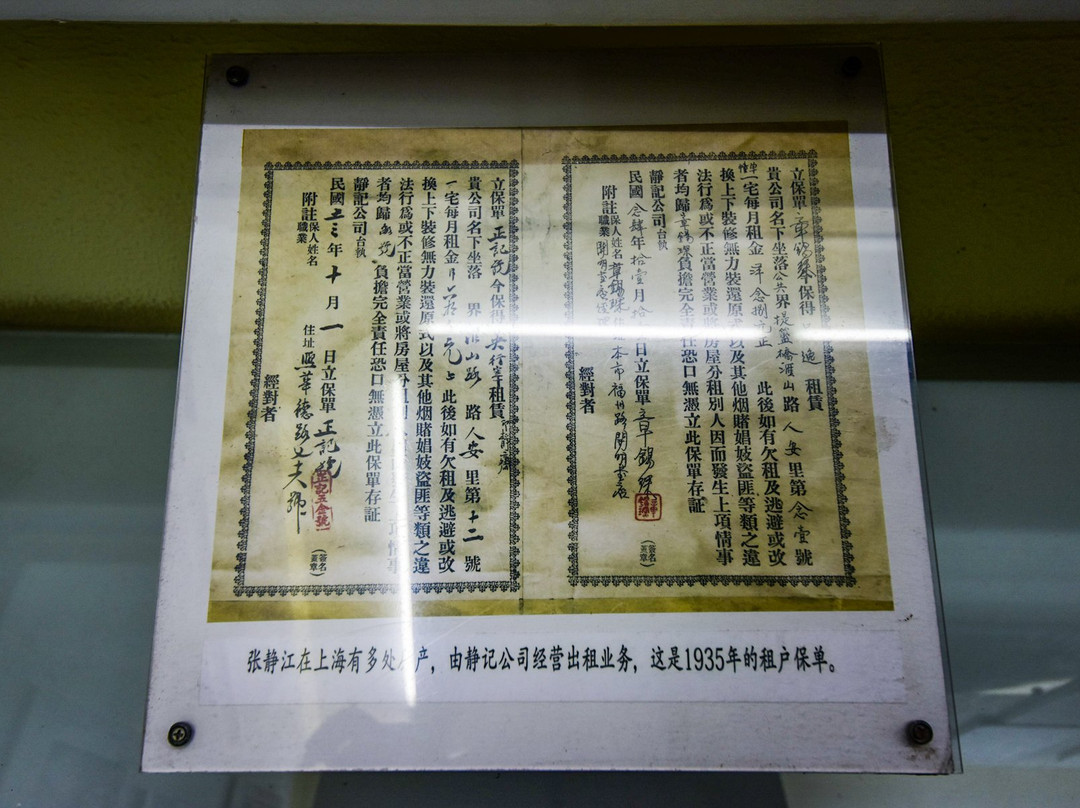 立保單 章錫琛 今保得 租賃
貴公司名下坐落 公共 界 提籃橋滙山 路 人安 里第 念壹 號
一宅每月租金 洋念捌元正 此後如有欠租及逃避或改
換上下裝修無力裝還原式以及其他烟賭娼妓盜匪等類之違
法行爲或不正當營業或將房屋分租別人因而發生上項情事
者均歸 章錫琛 負擔完全責任恐口無憑立此保單存証
靜記公司台執
民國 念肆 年 拾壹 月 拾 日立保單 章錫琛
附註 保人姓名 章錫琛 職業 開明書店 住址 本市福州路開明書店
經對者
(簽名蓋章)
立保單 正記號 今保得 租賃
貴公司名下坐落 界 滙山路 路 人安 里第 十二 號
一宅每月租金 此後如有欠租及逃避或改
換上下裝修無力裝還原式以及其他烟賭娼妓盜匪等類之違
法行爲或不正當營業或將房屋分租 上項情事
者均歸 負擔完全責任恐口無憑立此保單存証
靜記公司台執
民國 年 十 月 一 日立保單 正記號
附註 保人姓名 職業 住址 熙華德路
正記五金號
經對者
(簽名蓋章)
张静江在上海有多处 产，由静记公司经营出租业务，这是1935年的租户保单。